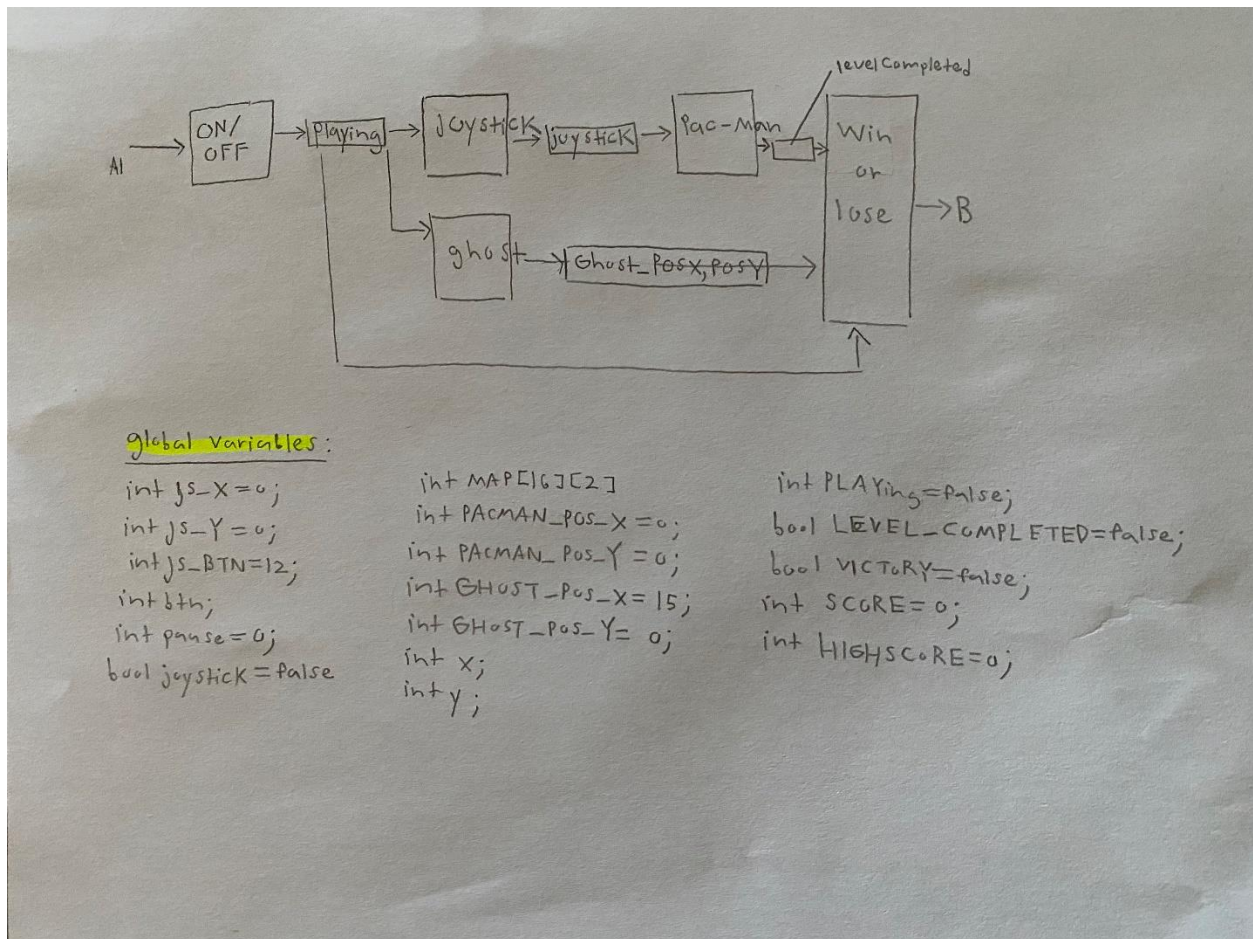 levelCompleted
AI
ON/
OFF
Playing
Joystick
joystick
Pac-Man
Win
or
lose
B
ghost
Ghost_PosX, PosY
global variables:
int js_X=0;
int js_Y=0;
int js_BTN=12;
int btn;
int pause=0;
bool joystick=false
int MAP[16][2]
int PACMAN_POS_X=0;
int PACMAN_Pos_Y=0;
int GHOST_Pos_X=15;
int GHOST_Pos_Y=0;
int x;
int y;
int PLAYing=false;
bool LEVEL_COMPLETED=false;
bool VICTORY=false;
int SCORE=0;
int HIGHSCORE=0;